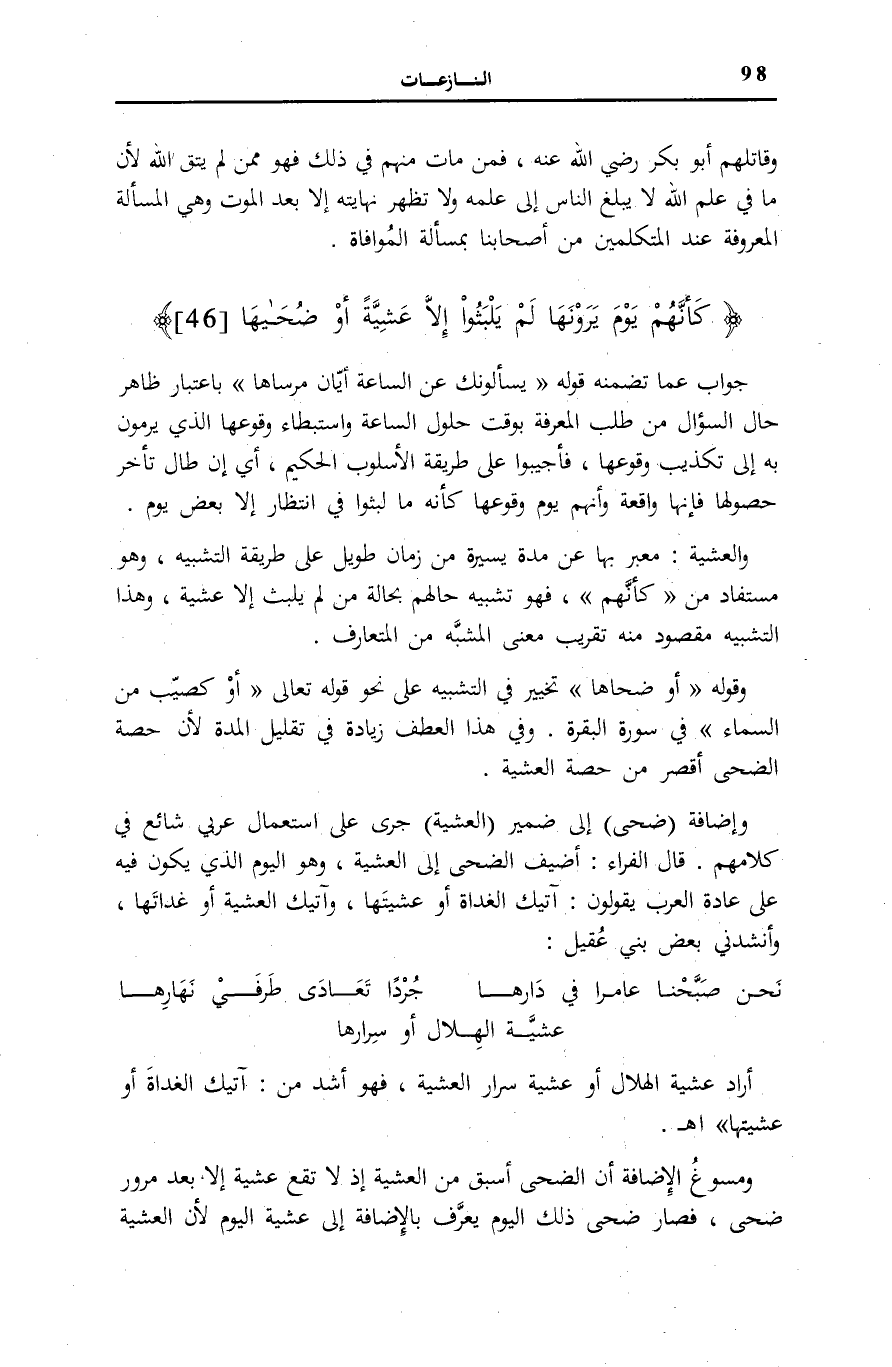 98
النــازعــات
وقاتلهم أبو بكر رضي الله عنه ، فمن مات منهم في ذلك فهو ممن لم يتق الله لأن
ما في علم الله لا يبلغ الناس إلى علمه ولا تظهر نهايته إلا بعد الموت وهي المسألة
المعروفة عند المتكلمين من أصحابنا بمسألة المُوافاة .
﴿ كَأَنَّهُمْ يَوْمَ يَرَوْنَهَا لَمْ يَلْبَثُواْ إِلاَّ عَشِيَّةً أَوْ ضُحَىٰهَا [46]﴾
جواب عما تضمنه قوله « يسألونك عن الساعة أيّان مرساها » باعتبار ظاهر
حال السؤال من طلب المعرفة بوقت حلول الساعة واستبطاء وقوعها الذي يرمون
به إلى تكذيب وقوعها ، فأجيبوا على طريقة الأسلوب الحكيم ، أي إن طال تأخر
حصولها فإنها واقعة وأنهم يوم وقوعها كأنه ما لبثوا في انتظار إلا بعض يوم .
والعشية : معبر بها عن مدة يسيرة من زمان طويل على طريقة التشبيه ، وهو
مستفاد من « كأنَّهم » ، فهو تشبيه حالهم بحالة من لم يلبث إلا عشية ، وهذا
التشبيه مقصود منه تقريب معنى المشبَّه من المتعارف .
وقوله « أو ضحاها » تخيير في التشبيه على نحو قوله تعالى « أوْ كصيّب من
السماء » في سورة البقرة . وفي هذا العطف زيادة في تقليل المدة لأن حصة
الضحى أقصر من حصة العشية .
وإضافة (ضحى) إلى ضمير (العشية) جرى على استعمال عربي شائع في
كلامهم . قال الفراء : أضيف الضحى إلى العشية ، وهو اليوم الذي يكون فيه
على عادة العرب يقولون : آتيك الغداة أو عشيتَها ، وآتيك العشية أو غداتَها ،
وأنشدني بعض بني عُقيل :
نَحـن صَبَّحْنـا عامـرا في دَارهــا جُرْدًا تَعَــادَى طَرفَــيْ نَهَارِهــا
عشيَّــة الهِــلال أو سِرارها
أراد عشية الهلال أو عشية سرار العشية ، فهو أشد من : آتيك الغداةَ أو
عشيتها» اهـ .
ومسوغُ الإِضافة أن الضحى أسبق من العشية إذ لا تقع عشية إلا بعد مرور
ضحى ، فصار ضحى ذلك اليوم يعرَّف بالإِضافة إلى عشية اليوم لأن العشية